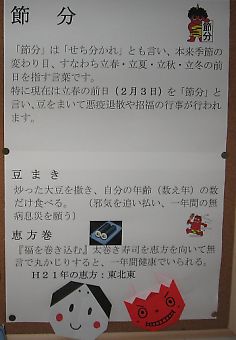 節 分
節分
「節分」は「せち分かれ」とも言い、本来季節の
変わり目、すなわち立春・立夏・立秋・立冬の前
日を指す言葉です。
特に現在は立春の前日（２月３日）を「節分」と
言い、豆をまいて悪疫退散や招福の行事が行われ
ます。
豆 ま き
炒った大豆を撒き、自分の年齢（数え年）の数
だけ食べる。 （邪気を追い払い、一年間の無
病息災を願う）
恵 方 巻
『福を巻き込む』太巻き寿司を恵方を向いて無
言で丸かじりすると、一年間健康でいられる。
Ｈ２１年の恵方：東北東